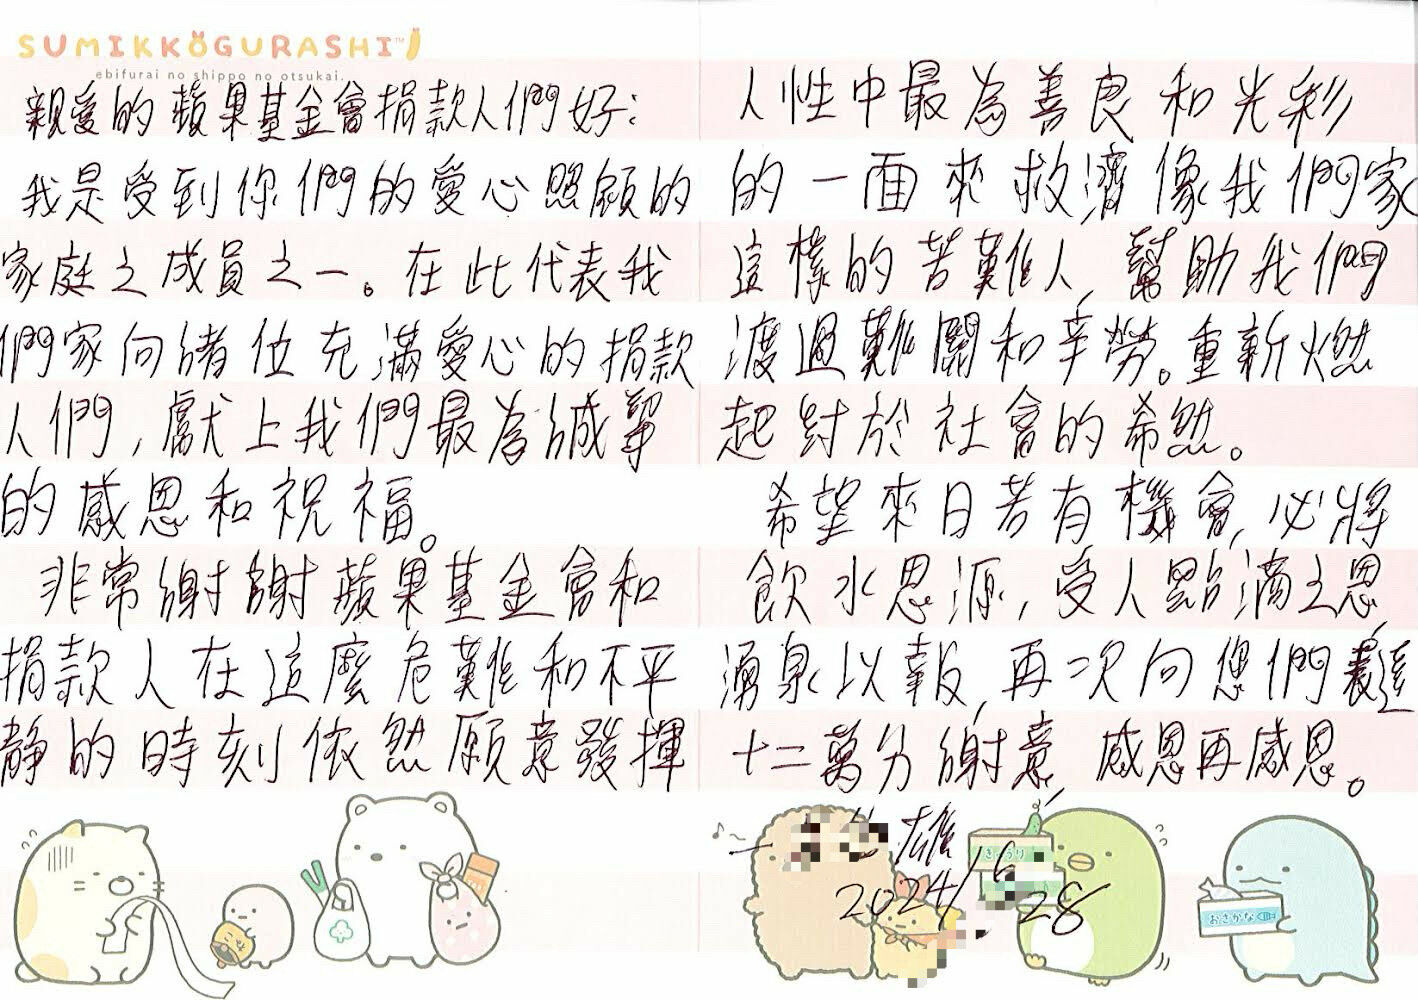 SUMIKKOGURASHI™
ebifurai no shippo no otsukai.
親愛的蘋果基金會捐款人們好:
我是受到你們的愛心照顧的
家庭之成員之一。在此代表我
們家向諸位充滿愛心的捐款
人們,獻上我們最為誠摯
的感恩和祝福。
非常謝謝蘋果基金會和
捐款人在這麼危難和不平
靜的時刻依然願意發揮
人性中最為善良和光彩
的一面來救濟像我們家
這樣的苦難人,幫助我們
渡過難關和辛勞。重新燃
起對於社會的希然。
希望來日若有機會,必將
飲水思源,受人點滴之恩,
湧泉以報,再次向您們表達
十二萬分謝意,感恩再感恩。
雄
2024/6/28
きゅうり
おさかな